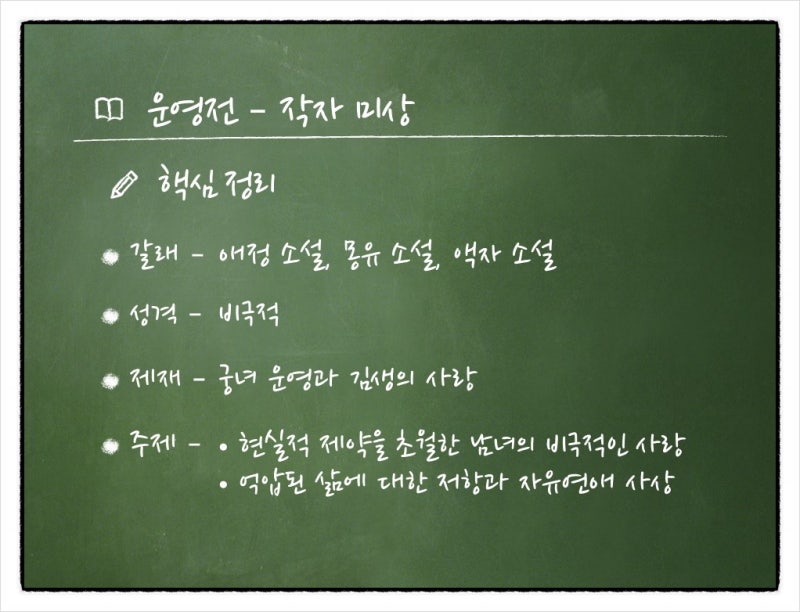 운영전 - 작자 미상
핵심 정리
갈래 - 애정 소설, 몽유 소설, 액자 소설
성격 - 비극적
제재 - 궁녀 운영과 김생의 사랑
주제 - • 현실적 제약을 초월한 남녀의 비극적인 사랑
• 억압된 삶에 대한 저항과 자유연애 사상